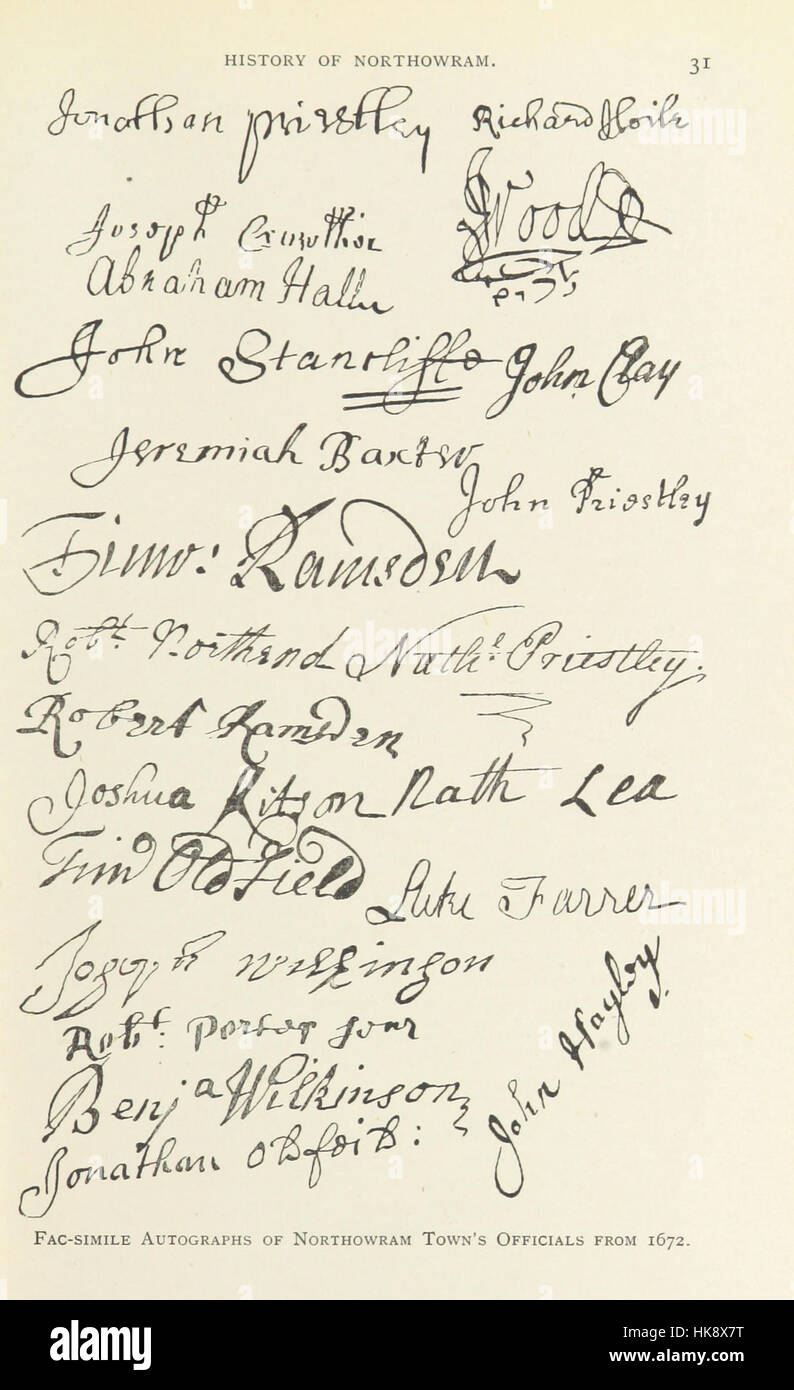 HISTORY OF NORTHOWRAM. 31
Jonathan Priestley Richard Hoile
Joseph Crowther JWood
Abraham Hall
John Stancliffe John Clay
Jeremiah Baxter
John Priestley
Timo: Ramsden
Robt. Northend Nathl. Priestley.
Robert Ramsden
Joshua Kitson Nath Lea
Timo Oldfield
Luke Farrer
Joseph Wilkinson
Robt. Porter
John Hayley
Benja Wilkinson
Jonathan Oldfeild:
FAC-SIMILE AUTOGRAPHS OF NORTHOWRAM TOWN'S OFFICIALS FROM 1672.
alamy
alamy
alamy
alamy
alamy
Image ID: HK8X7T
www.alamy.com